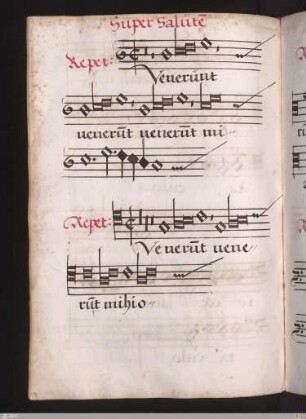 Super Salutē
Repet:
Venerunt
uenerūt uenerūt mi
Repet:
Ve nerūt uene
rūt mihio